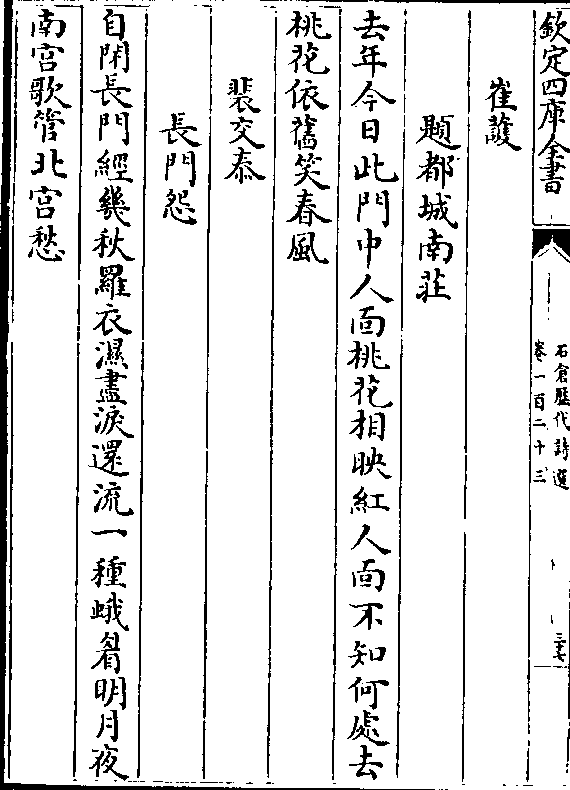 欽定四庫全書
石倉歷代詩選
卷一百二十三
崔護
題都城南莊
去年今日此門中人面桃花相映紅人面不知何處去
桃花依舊笑春風
裴交泰
長門怨
自閉長門經幾秋羅衣濕盡淚還流一種蛾眉明月夜
南宮歌管北宮愁